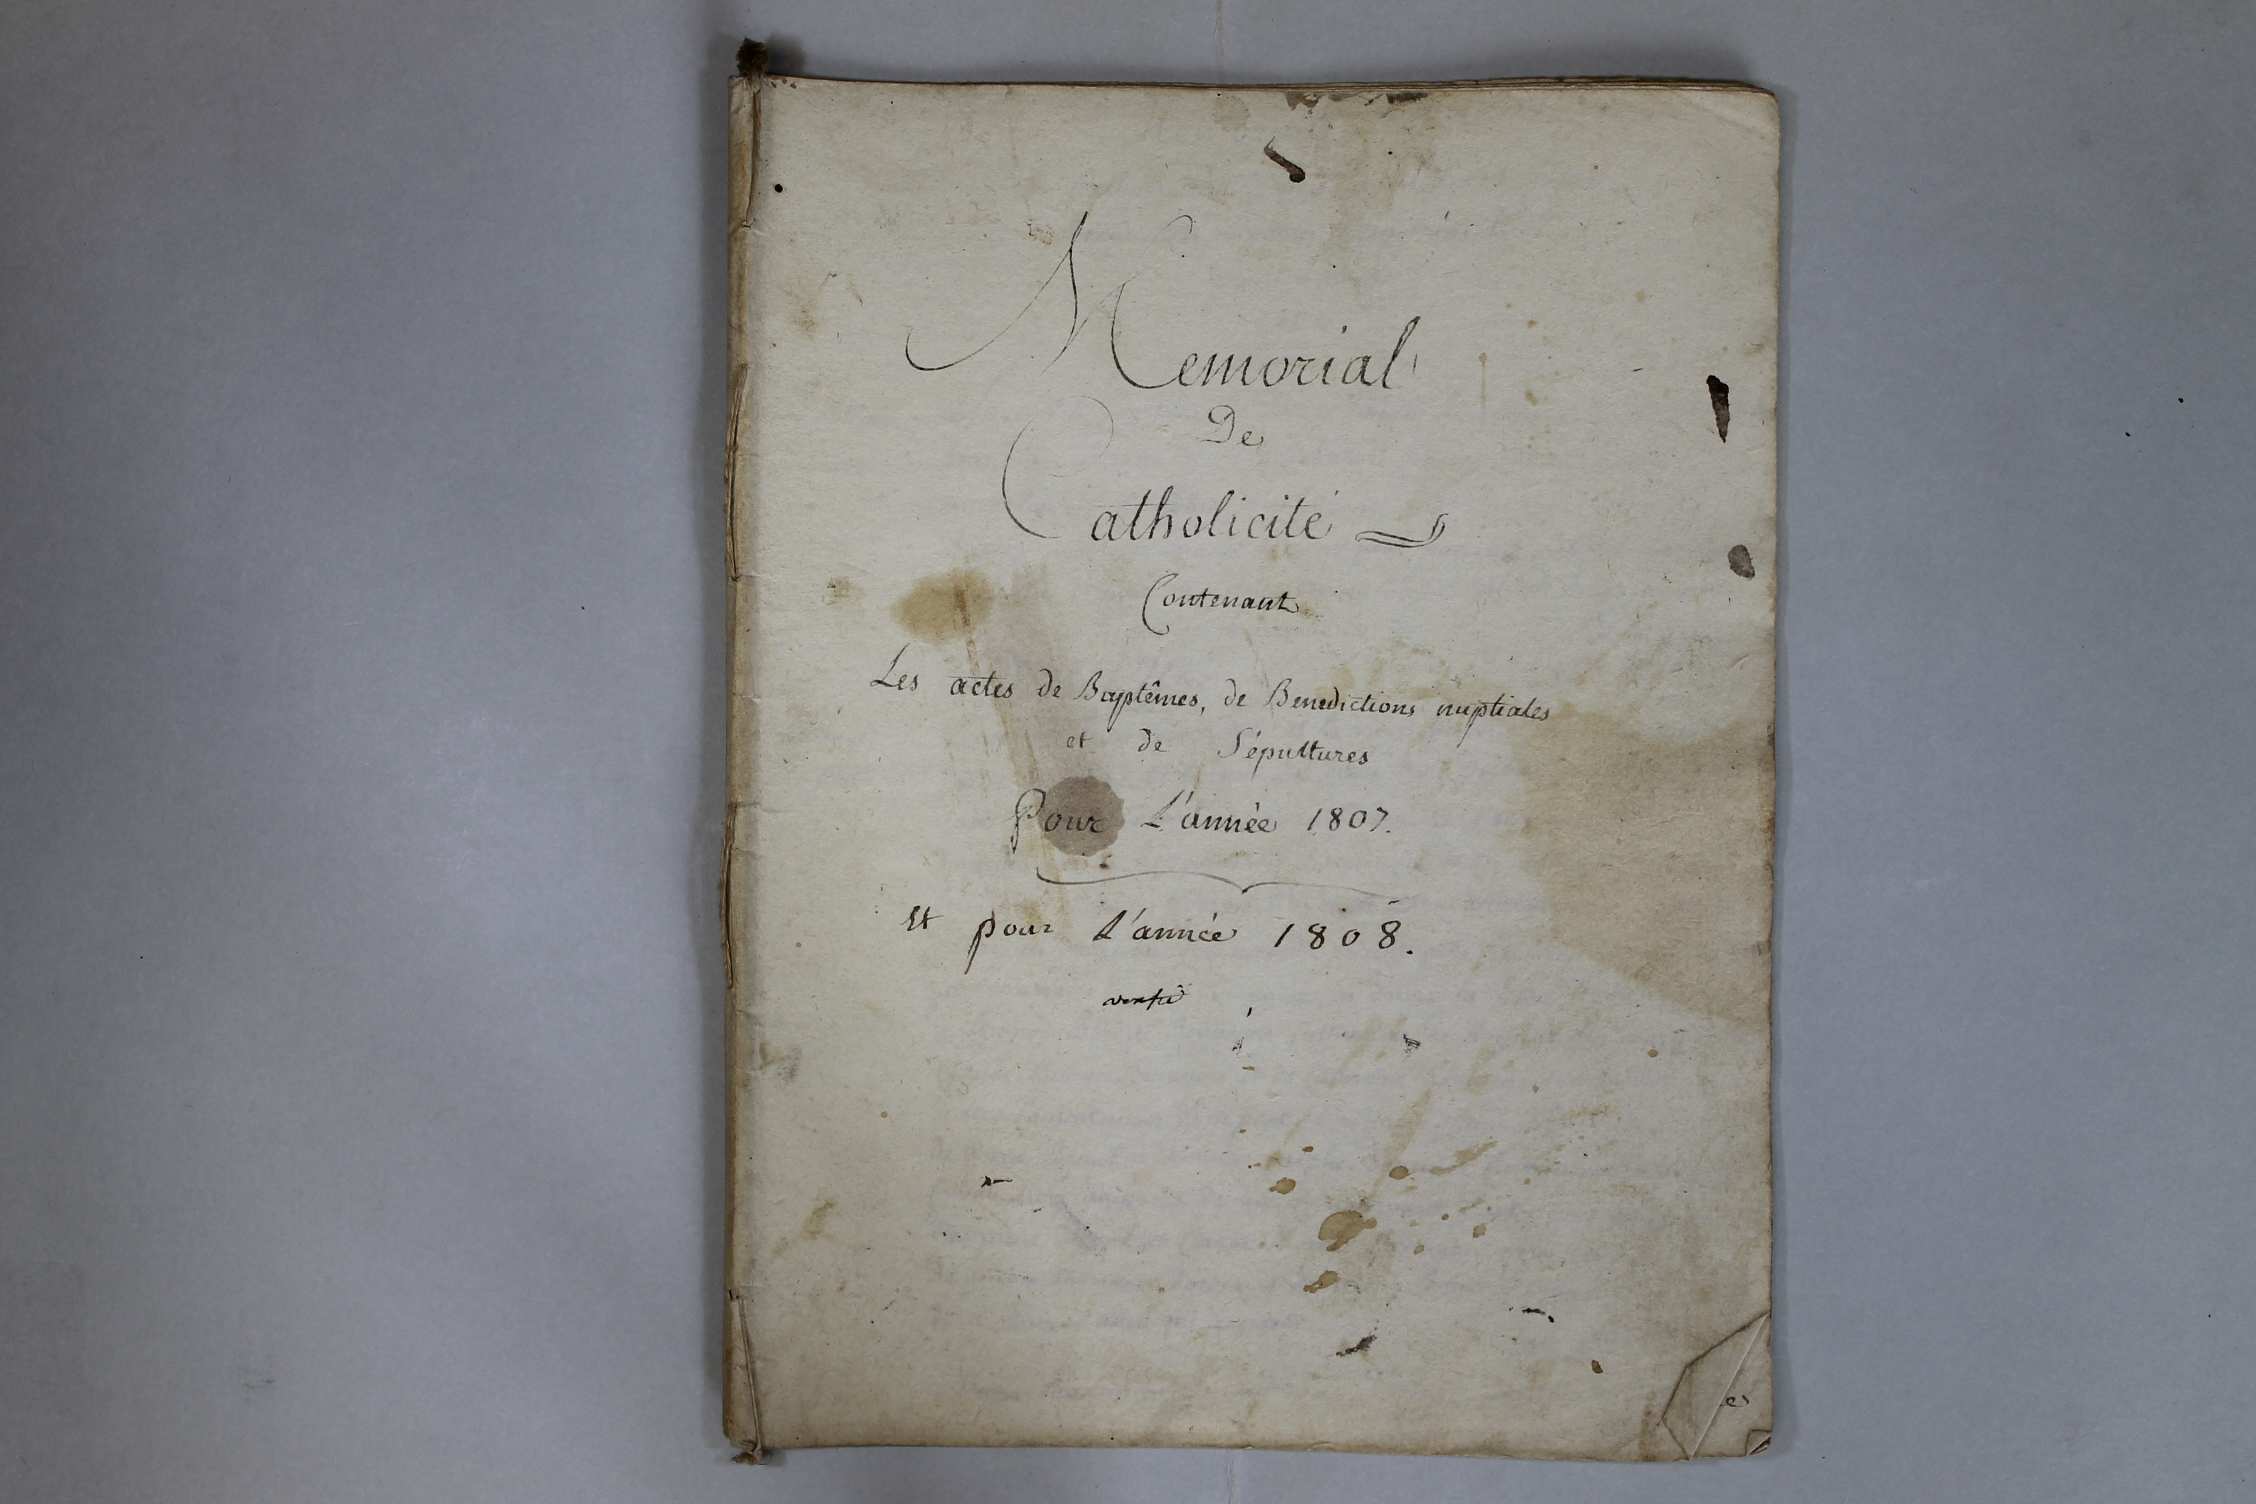 Memorial
De
Catholicité
Contenant
Les actes de Baptêmes, de Benedictions nuptiales
et de Sépultures
Pour L'année 1807.
Et pour L'année 1808.